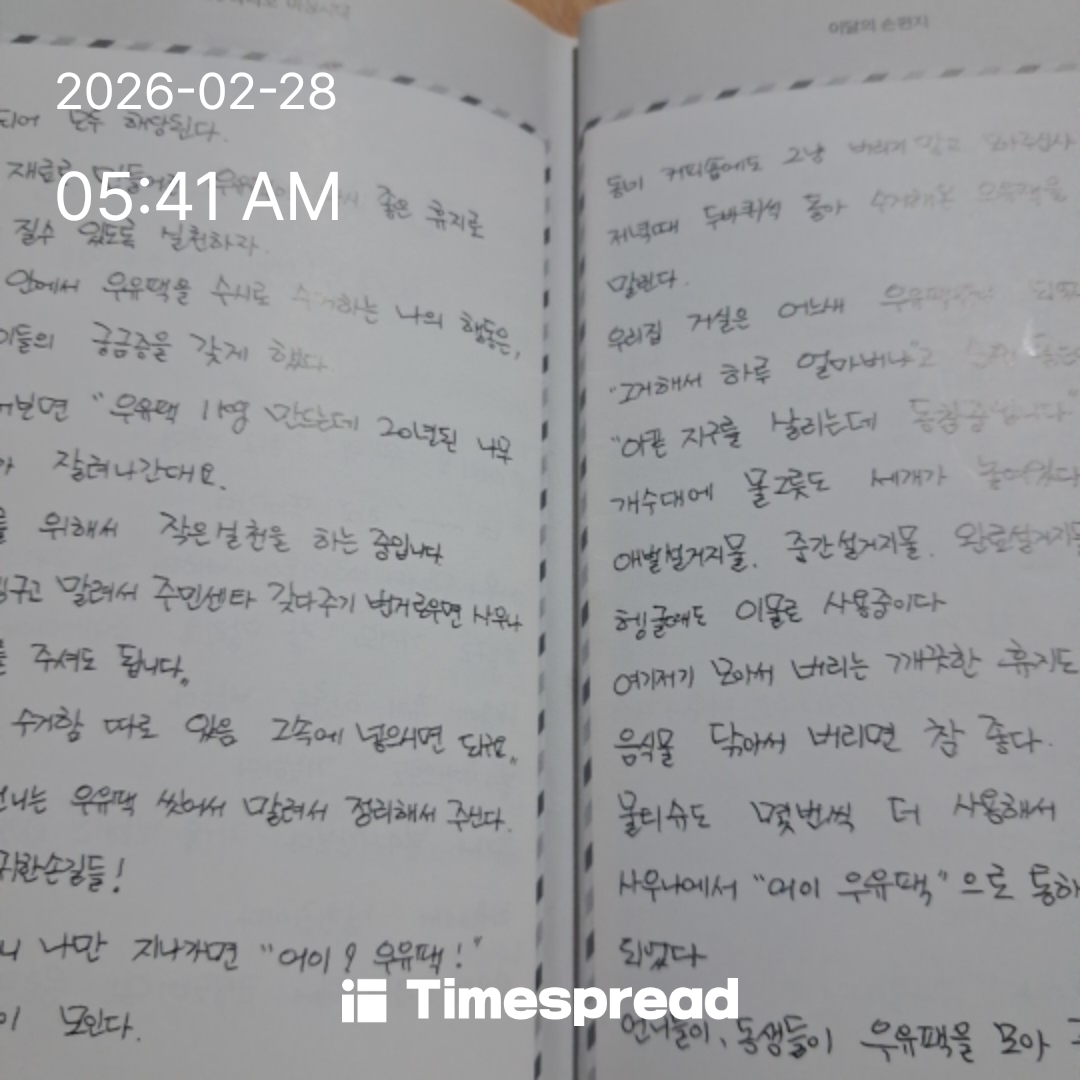 이달의 손편지
2026-02-28
05:41 AM
되어 모두 해당된다.
재료로 좋은 휴지로
질수 있도록 실천하자.
안에서 우유팩을 수시로 수거하는 나의 행동은,
이들의 궁금증을 갖게 했다
"우유팩 만드는데 20년된 나무
잘려나간대요.
위해서 작은실천을 하는 중입니다
말려서 주민센타 갖다주기 번거로우면 사우나
주셔도 됩니다"
수거함 따로 있음 그속에 넣으시면 되구요"
우유팩 씻어서 말려서 정리해서 주신다.
귀한손길들!
나만 지나가면 "어이? 우유팩!"
모인다.
동네 커피숍에도 그냥 버리지 말고 모아주십사
저녁때 두바퀴씩 돌아 수거해온 우유팩을
말린다.
우리집 거실은 어느새
"그거해서 하루 얼마버냐"고
"아픈 지구를 살리는데 동참중입니다"
개수대에 물그릇도 세개가 놓여있다
애벌설거지물. 중간설거지물. 완료설거지물
헹굴때도 이물로 사용중이다
여기저기 모아서 버리는 깨끗한 휴지도
음식물 닦아서 버리면 참 좋다.
물티슈도 몇번씩 더 사용해서
사우나에서 "어이 우유팩"으로 통하
되었다
언니들이, 동생들이 우유팩을 모아
Timespread